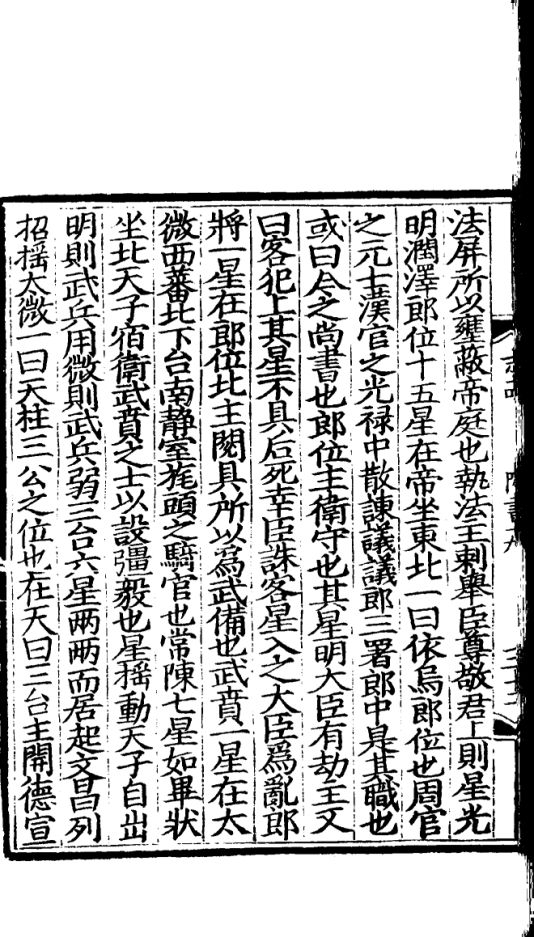 法屏所以壅蔽帝庭也執法主刺舉臣尊敬君上則星光
明潤澤郎位十五星在帝坐東北一曰依烏郎位也周官
之元士漢官之光禄中散諫議議郎三署郎中是其職也
或曰今之尚書也郎位主衛守也其星明大臣有劫主又
曰客犯上其星不具后死幸臣誅客星入之大臣爲亂郎
將一星在郎位北主閱具所以爲武備也武賁一星在太
微西蕃北下台南静室旄頭之騎官也常陳七星如畢狀
坐北天子宿衛武賁之士以設彊毅也星摇動天子自出
明則武兵用微則武兵弱三台六星兩兩而居起文昌列
招摇太微一曰天柱三公之位也在天曰三台主開德宣